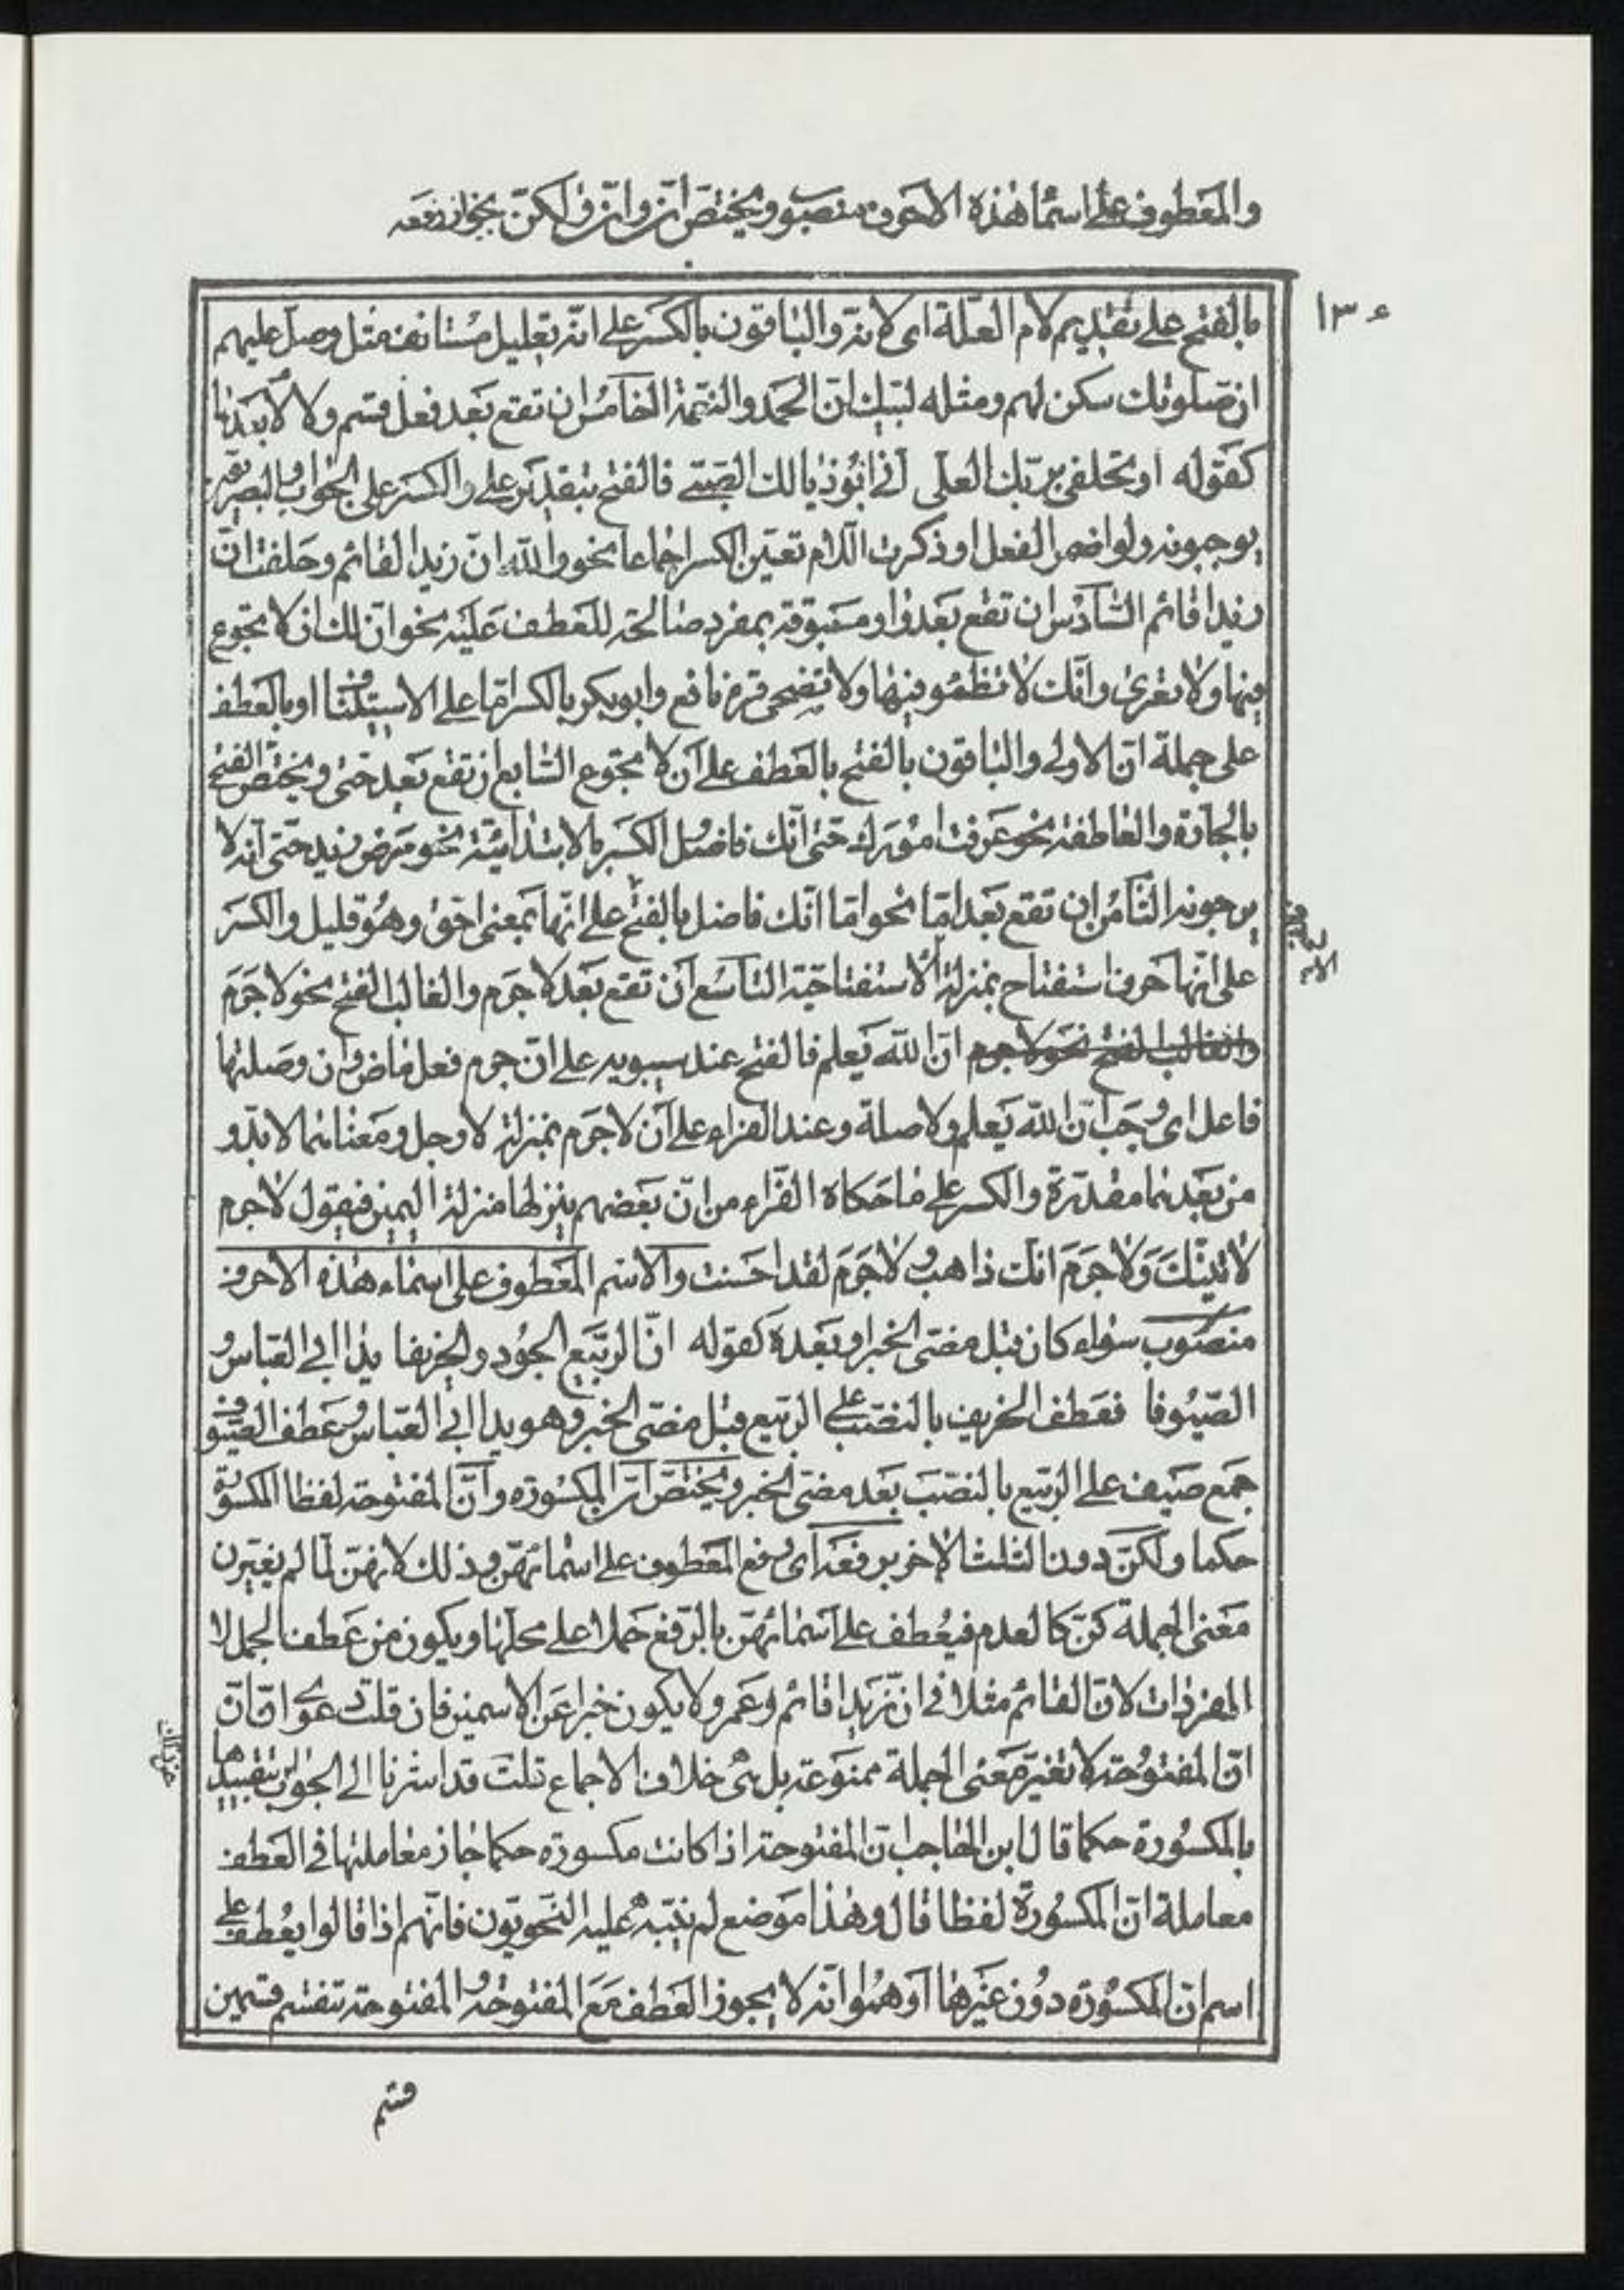 والمعطوف على اسماء هذه الاحرف منصوب ويختص ان وان ولكن بجواز رفعه
١٣٠
بالفتح على تقديم لام العلة اى لانه والباقون بالكسر على انه تعليل مستانف مثل وصل عليهم
ان صلوتك سكن لهم ومثله لبيك ان الحمد والنعمة الخامس ان تقع بعد فعل قسم ولا لام بعدها
كقوله او تحلفى بربك العلى انى ابو ذيالك الصبى فالفتح بتقدير على والكسر على الجواب والبصريون
يوجبونه ولو اضمر الفعل او ذكرت اللام تعين الكسر اجماعا نحو والله ان زيدا لقائم وحلفت ان
زيدا قائم السادس ان تقع بعد واو مسبوقة بمفرد صالحة للعطف عليه نحو ان لك ان لا تجوع
فيها ولا تعرى وانك لا تظمؤ فيها ولا تضحى قرء نافع وابو بكر بالكسر اما على الاستيناف او بالعطف
على جملة ان الاولى والباقون بالفتح بالعطف على ان لا تجوع السابع ان تقع بعد حتى ويختص الفتح
بالجارة والعاطفة نحو عرفت امورك حتى انك فاضل والكسر بالابتدائية نحو مرض زيد حتى انه لا
يرجونه الثامن ان تقع بعد اما نحو اما انك فاضل بالفتح على انها بمعنى احق وهو قليل والكسر
على انها حرف استفتاح بمنزلة الا استفتاحية التاسع ان تقع بعد لا جرم والغالب الفتح نحو لا جرم
والغالب الفتح نحو لا جرم ان الله يعلم فالفتح عند سيبويه على ان جرم فعل ماض وان وصلتها
فاعل اى وجب ان الله يعلم ولا صلة وعند الفراء على ان لا جرم بمنزلة لا رجل ومعناهما لا بد و
من بعدهما مقدرة والكسر على ما حكاه الفراء من ان بعضهم ينزلها منزلة اليمين فيقول لا جرم
لآتينك ولا جرم انك ذاهب ولا جرم لقد احسنت والاسم المعطوف على اسماء هذه الاحرف
منصوب سواء كان قبل مضى الخبر او بعده كقوله ان الربيع الجود والخريفا يدا ابى العباس و
الصيوفا فعطف الخريف بالنصب على الربيع قبل مضى الخبر وهو يدا ابى العباس وعطف الصيوف
جمع صيف على الربيع بالنصب بعد مضى الخبر ويختص ان المكسورة وان المفتوحة لفظا المكسورة
حكما ولكن دون الثلث الاخر برفعه اى رفع المعطوف على اسمائهن وذلك لانهن لما لم يغيرن
معنى الجملة كن كالعدم فيعطف على اسمائهن بالرفع حملا على محلها ويكون من عطف الجمل لا
المفردات لان القائم مثلا فى ان زيدا قائم وعمرو لا يكون خبرا عن الاسمين فان قلت دعوى ان ان
ان المفتوحة لا تغير معنى الجملة ممنوعة بل هى خلاف الاجماع قلت قد اشرنا الى الجواب بتقييدها
بالمكسورة حكما قال ابن الحاجب ان المفتوحة اذا كانت مكسورة حكما جاز معاملتها فى العطف
معاملة ان المكسورة لفظا قال وهذا موضع لم ينبه عليه النحويون فانهم اذا قالوا يعطف على
اسم ان المكسورة دون غيرها اوهموا انه لا يجوز العطف مع المفتوحة والمفتوحة تنقسم قسمين
قسم